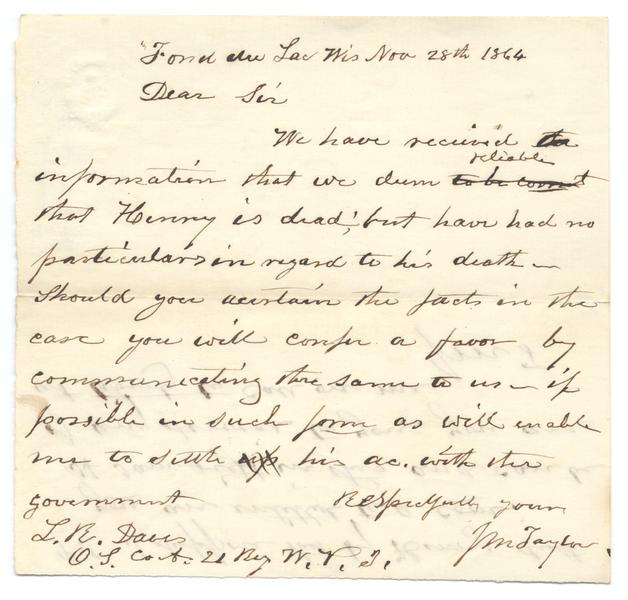 "Fond du Lac Wis Nov 28th 1864
Dear Sir
We have received
reliable
information that we dum to be correct
that Henry is dead; but have had no
particulars in regard to his death –
Should you acertain the facts in the
case you will confer a favor by
communicating the same to us – if
possible in such form as will enable
me to settle up his ac. with the
government Respectfully yours
L. R. Davis JM Taylor
O.S. Co A. 21 Reg W. V. I.